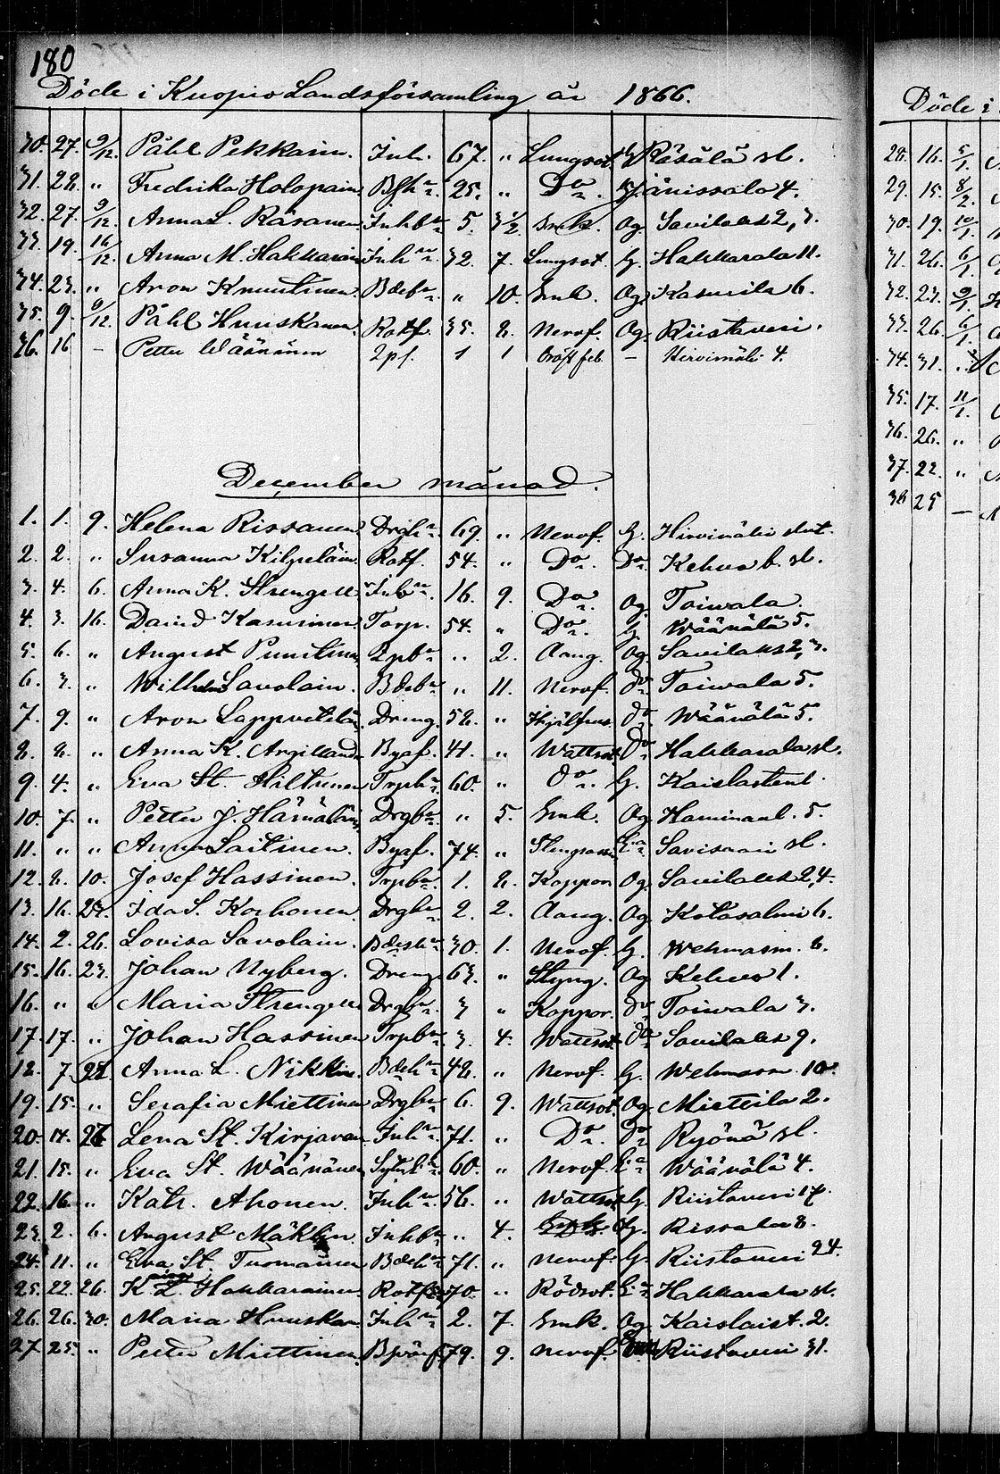 180
Döde i Kuopio Landsförsamling år 1866.
30. 27. 9/12. Påhl Pekkain. Inh. 67. " Lungsot. Räsälä sl.
31. 28. " Fredrika Holopain 25. " Do Jänissalo 4.
32. 27. 9/12. Anna L. Räsänen Inhbn 5. 3 1/2 Smk. Og. Savilaks 2, 3.
33. 19. 16/12. Anna M. Hakkarain Inhn. 32. 7. Lungsot G. Hakkarala 11.
34. 23. " Aron Knuutinen Bdebn. " 10. Smk. Og. Kasurila 6.
35. 9. 9/12. Påhl Huuskonen Rotf. 35. 8. Nervf. Og. Riistaveri.
36. 16 – Petter Wäänänen 2pf. 1 1 – Hirvimäki 4.
December månad.
1. 1. 9. Helena Rissanen 69. " Nervf. G. Hirvimäki
2. 2. " Susanna Kilpeläin Rotf. 54. " Do. Do. Kehvo b. sl.
3. 4. 6. Anna K. Strengell Inhn. 16. 9. Do. Og Toiwala
4. 3. 16. David Kasurinen Torp. 54. " Do. G. Wäänälä 5.
5. 6. " August Puustinen 2pbn " 2. Aang. Og. Savilaks 2, 3.
6. 3. " Wilhelm Savolain. Bdebn " 11. Nervf. do Toiwala 5.
7. 9. " Aron Lappvetelän Dreng. 52. " do Wäänälä 5.
8. 8. " Anna K. Argillander Byaf. 41. " Wattsot Do Hakkarala sl.
9. 4. " Eva St. Hiltunen Trphn 60. " do. G. Kaislastent
10. 7. " Petter J. Hämäläin Drgbn. " 5. Smk. Og Haminanl. 5.
11. " " Anna Laitinen. Byaf. 74. " Savisaari sl.
12. 8. 10. Josef Hassinen. Trpbn. 1. 8. Koppor Og. Savilaks 2, 4.
13. 16. 23. Ida S. Korhonen Drgbn 2. 2. Aang. Og Kotasalmi 6.
14. 2. 26. Lovisa Savolain. 30. 1. Nervf. G. Wehmasm. 6.
15. 16. 23. Johan Nyberg. Dreng 63. " Styng. Og Kehvo 1.
16. " " Maria Strengell Drgbn. 3 " Koppor. do Toiwala 3.
17. 17. " Johan Hassinen Trpbn. 3. 4. Wattsot. do Savilaks 9.
18. 7. Anna L. Nikkin. Bdehn 48. " Nervf. G. Wehmasm 10.
19. 15. " Serafia Miettinen Drgbn 6. 9. Wattsot. Og. Miettilä 2.
20. 17. 26 Lena St. Kirjavan Inhn. 71. " Do. Do Ryönä sl.
21. 15. " Eva St. Wäänänen 60. " Nervf. Wäänälä 4.
22. 16. " Katr. Ahonen. Inhn 56. " Wattsot G. Riistaveri 17.
23. 2. 6. August Mäklin Inhbn. " 4. Og. Rissala 8.
24. 11. " Eva St. Tuomainen Bdehn 71. " Nervf. G. Riistaveri 24.
25. 22. 26. K. Hakkarainen 70. " Rödsot. Hakkarala sl.
26. 26. 30. Maria Huuskon Inhn 2. 7. Smk. Og Kaislaist. 2.
27. 25. " Petter Miettinen 79. 9. Nervf. Riistaveri 31.
Döde i
28. 16. 5/1.
29. 15. 8/2.
30. 19. 10/1.
31. 26. 6/1.
32. 23. 9/1.
33. 26. 6/1.
34. 31. "
35. 17. 11/1.
36. 26. "
37. 22. "
38 25 –